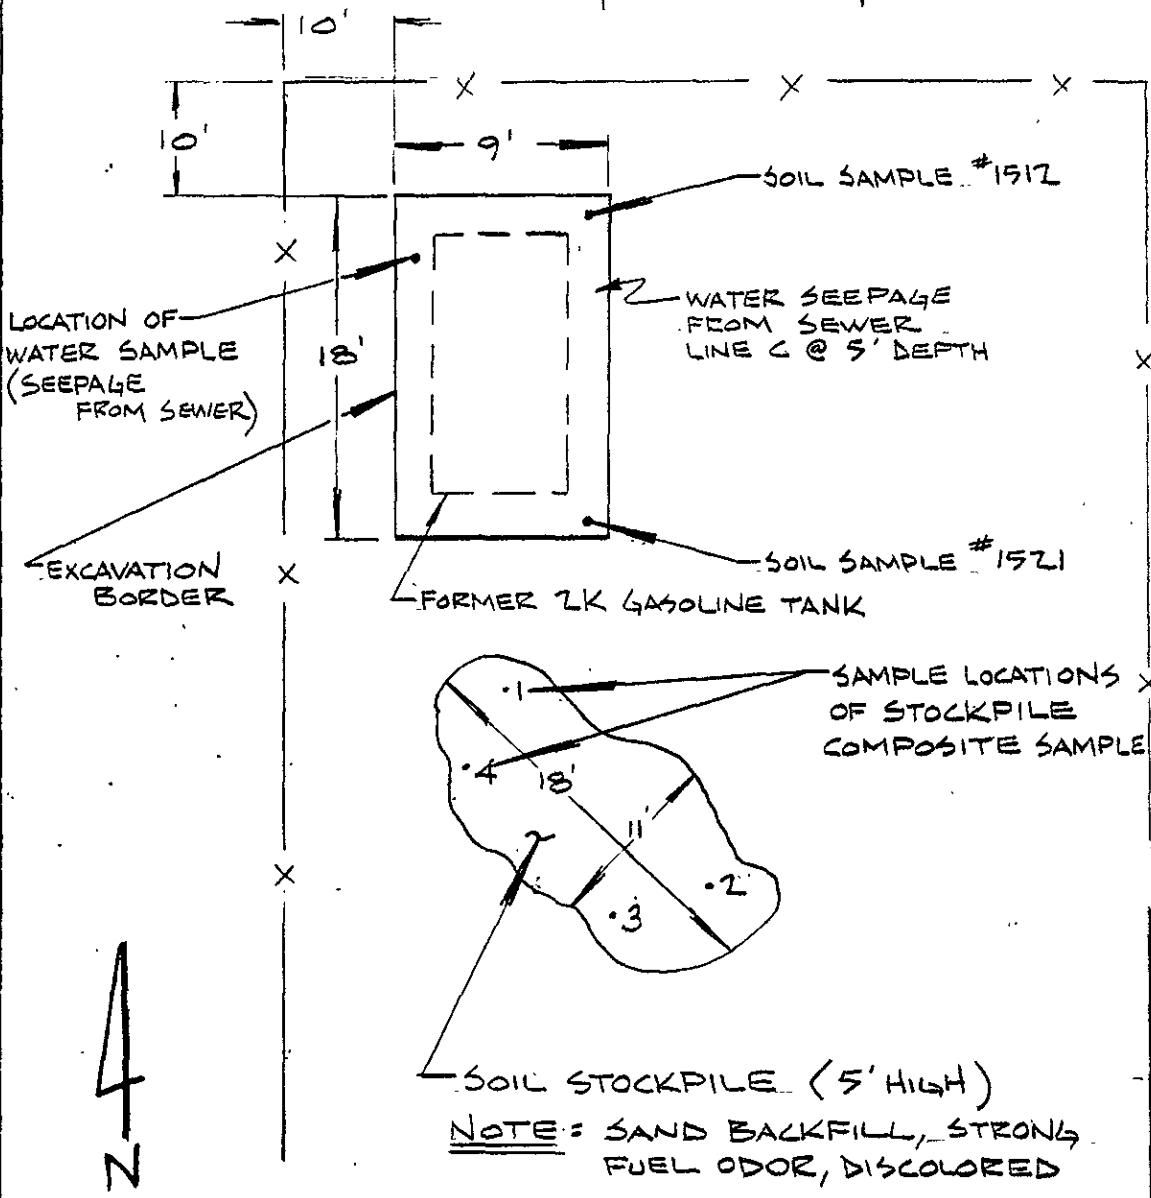 10'
X X X
10'
9'
SOIL SAMPLE #1512
X
LOCATION OF
WATER SAMPLE
(SEEPAGE
FROM SEWER)
18'
WATER SEEPAGE
FROM SEWER
LINE C @ 5' DEPTH
X
EXCAVATION
BORDER
X
SOIL SAMPLE #1521
FORMER 2K GASOLINE TANK
SAMPLE LOCATIONS
OF STOCKPILE
COMPOSITE SAMPLE
X
1
4
18'
11'
2
3
X
N
SOIL STOCKPILE (5' HIGH)
NOTE: SAND BACKFILL, STRONG
FUEL ODOR, DISCOLORED